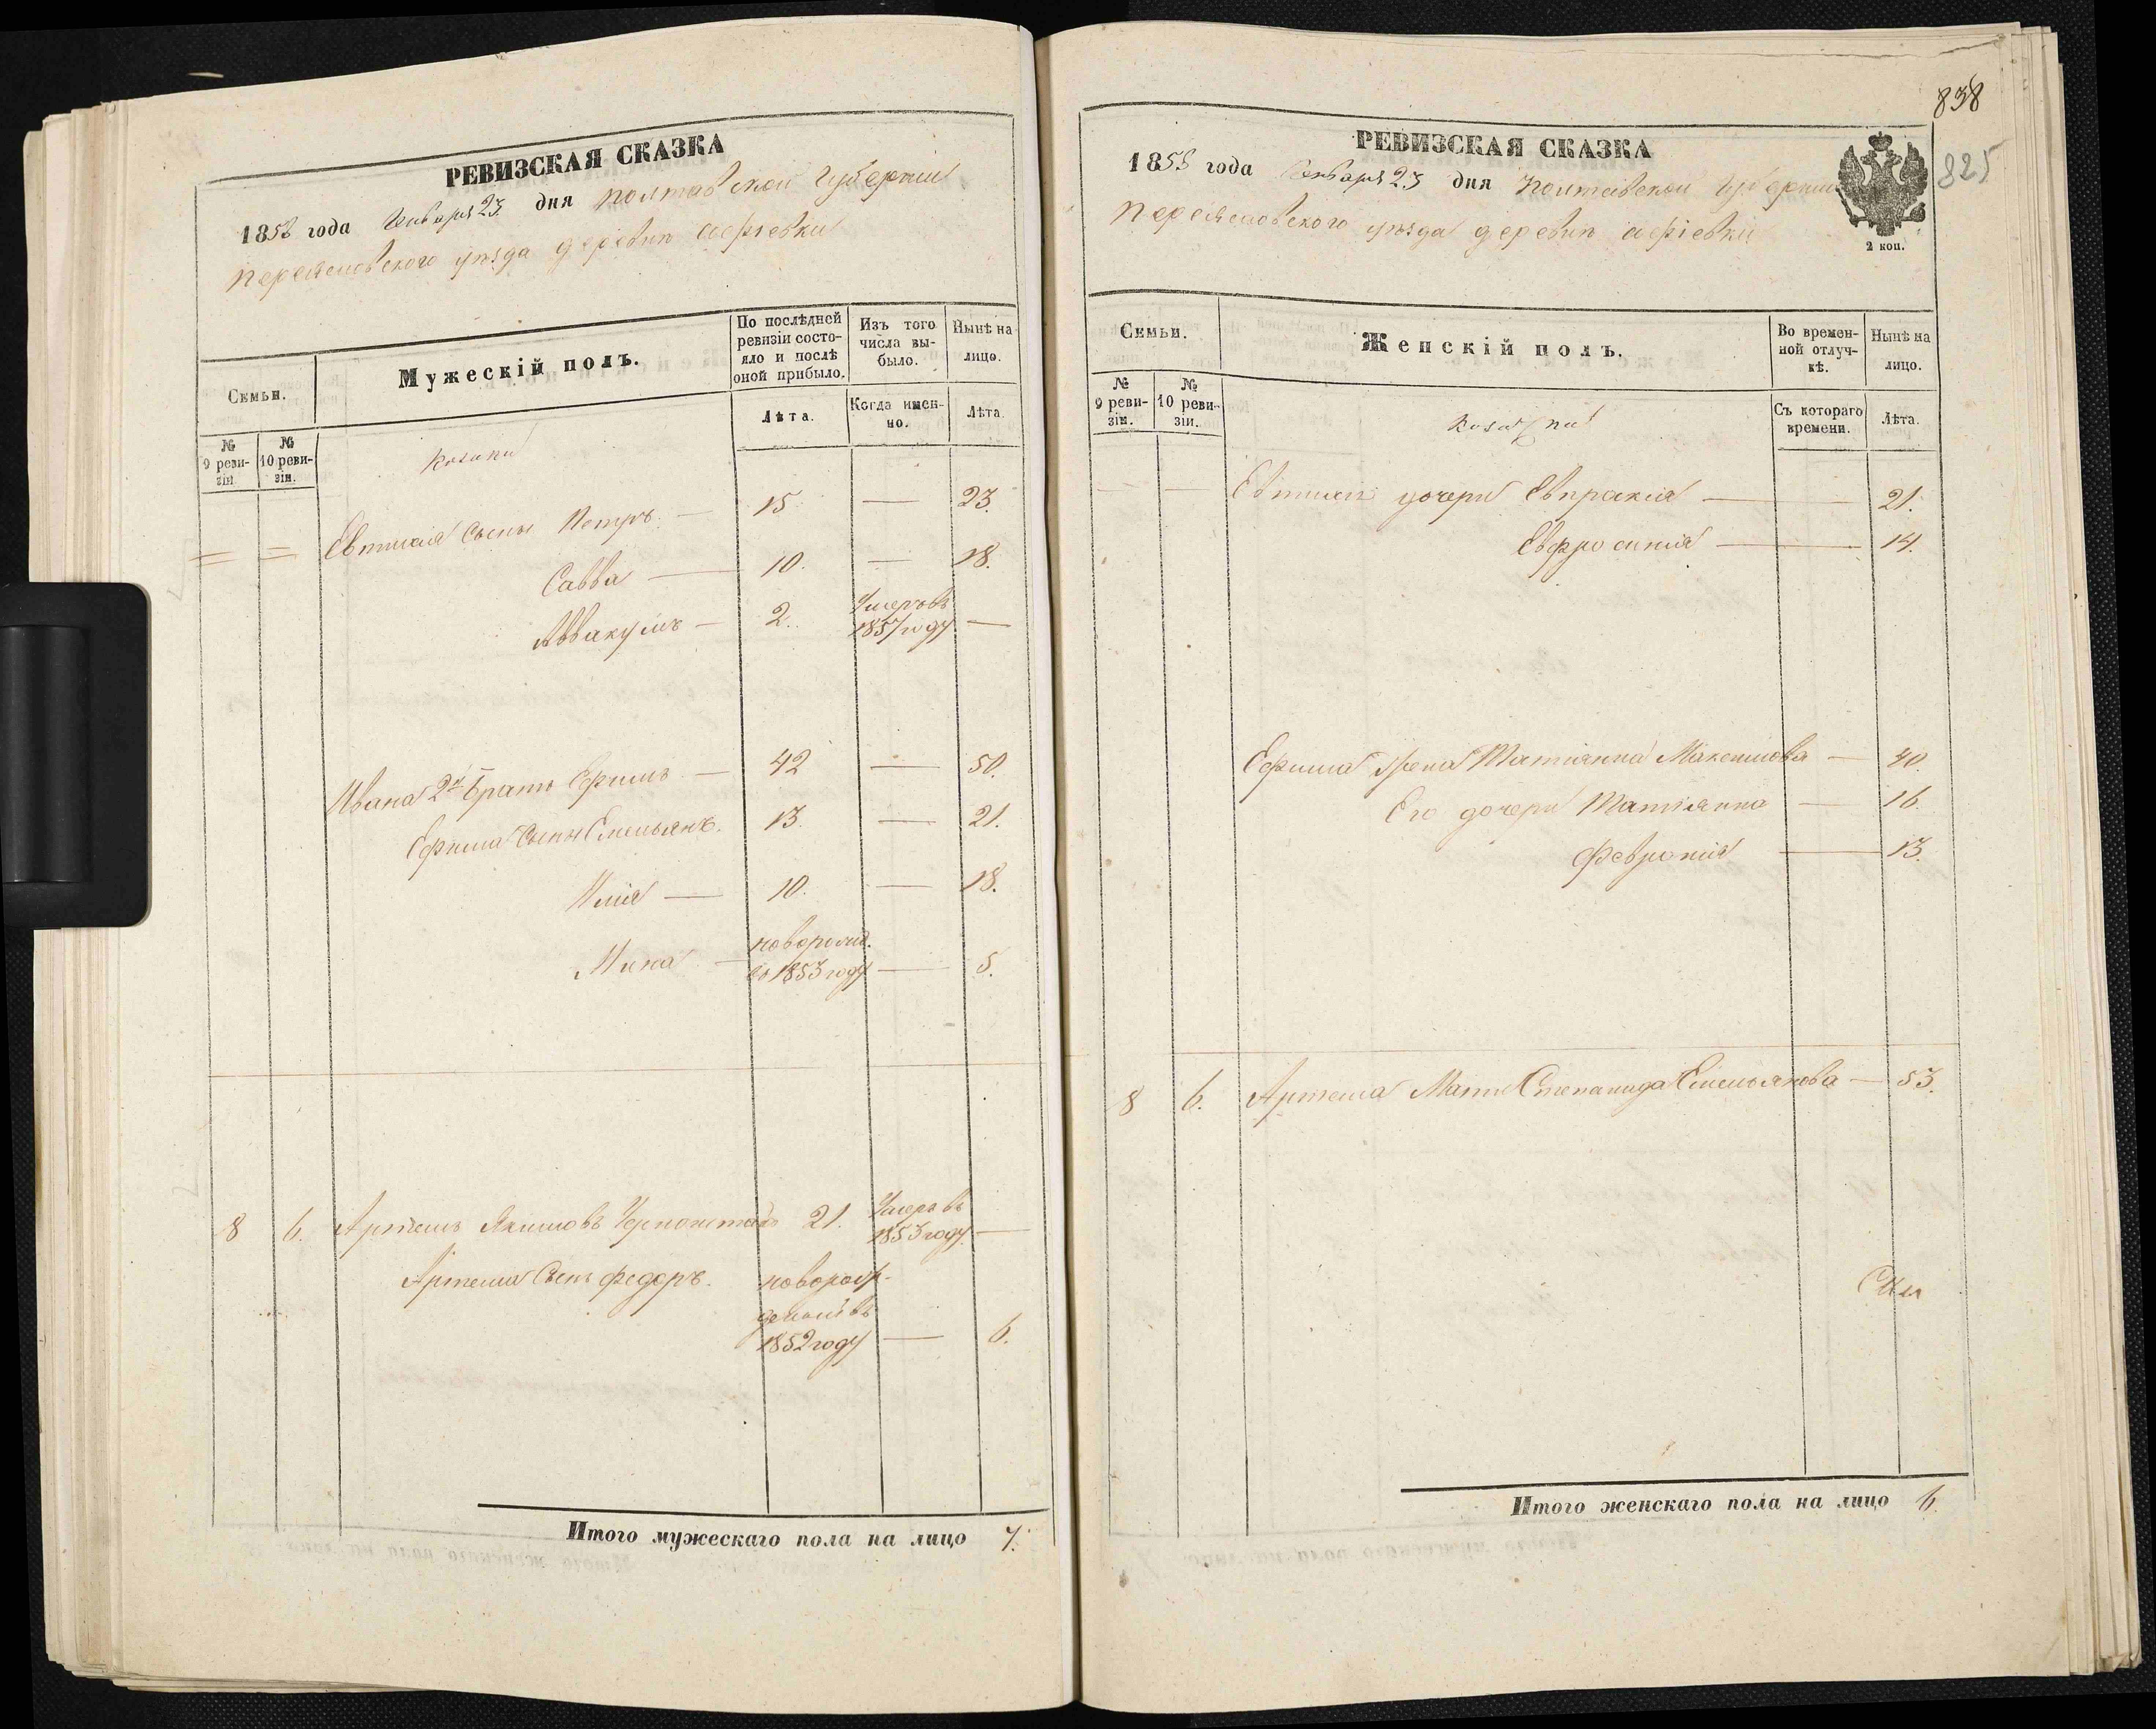 РЕВИЗСКАЯ СКАЗКА
1858 года Января 23 дня Полтавской Губернии
Переяславского уѣзда деревни
Семьи.
Мужескій полъ.
По послѣдней ревизіи состояло и послѣ оной прибыло.
Изъ того числа выбыло.
Нынѣ на лицо.
№ 9 ревизіи.
№ 10 ревизіи.
Козаки
Лѣта.
Когда именно.
Лѣта.
Евтихія Сыны Петръ — 15 — 23.
Савва — 10. — 18.
Аввакумъ — 2. Умеръ въ 1857 году —
Ивана 2й Братъ Ефимъ — 42 — 50.
Ефима Сыны Емельянъ. 13. — 21.
Илія — 10. — 18.
Мина — новорожд. въ 1853 году — 5.
8 6. Артемъ Якимовъ 21. Умеръ въ 1853 году —
Артема Сынъ Федоръ. новорожденый въ 1852 году — 6.
Итого мужескаго пола на лицо 7.
838
825
РЕВИЗСКАЯ СКАЗКА
1858 года Января 23 дня Полтавской Губернии
Переяславского уѣзда деревни
2 коп.
Семьи.
Женскій полъ.
Во временной отлучкѣ.
Нынѣ на лицо.
№ 9 ревизіи.
№ 10 ревизіи.
Козачки
Съ котораго времени.
Лѣта.
— — дочери Евпраксія — — 21.
Евфросинія — — 14.
Ефима Жена Татіянна Максимова — 40.
Его дочери Татіянна — 16.
Февронія — 13.
8 6. Артема Мать Степанида Емельянова — 53.
Итого женскаго пола на лицо 6.